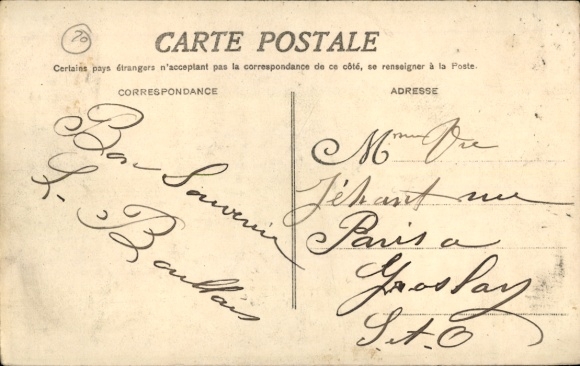 70
CARTE POSTALE
Certains pays étrangers n'acceptant pas la correspondance de ce côté, se renseigner à la Poste.
CORRESPONDANCE
Bon Souvenir
L. Boullais
ADRESSE
Mme Vve
Jéhant rue
Paris a
Groslay
S.et.O